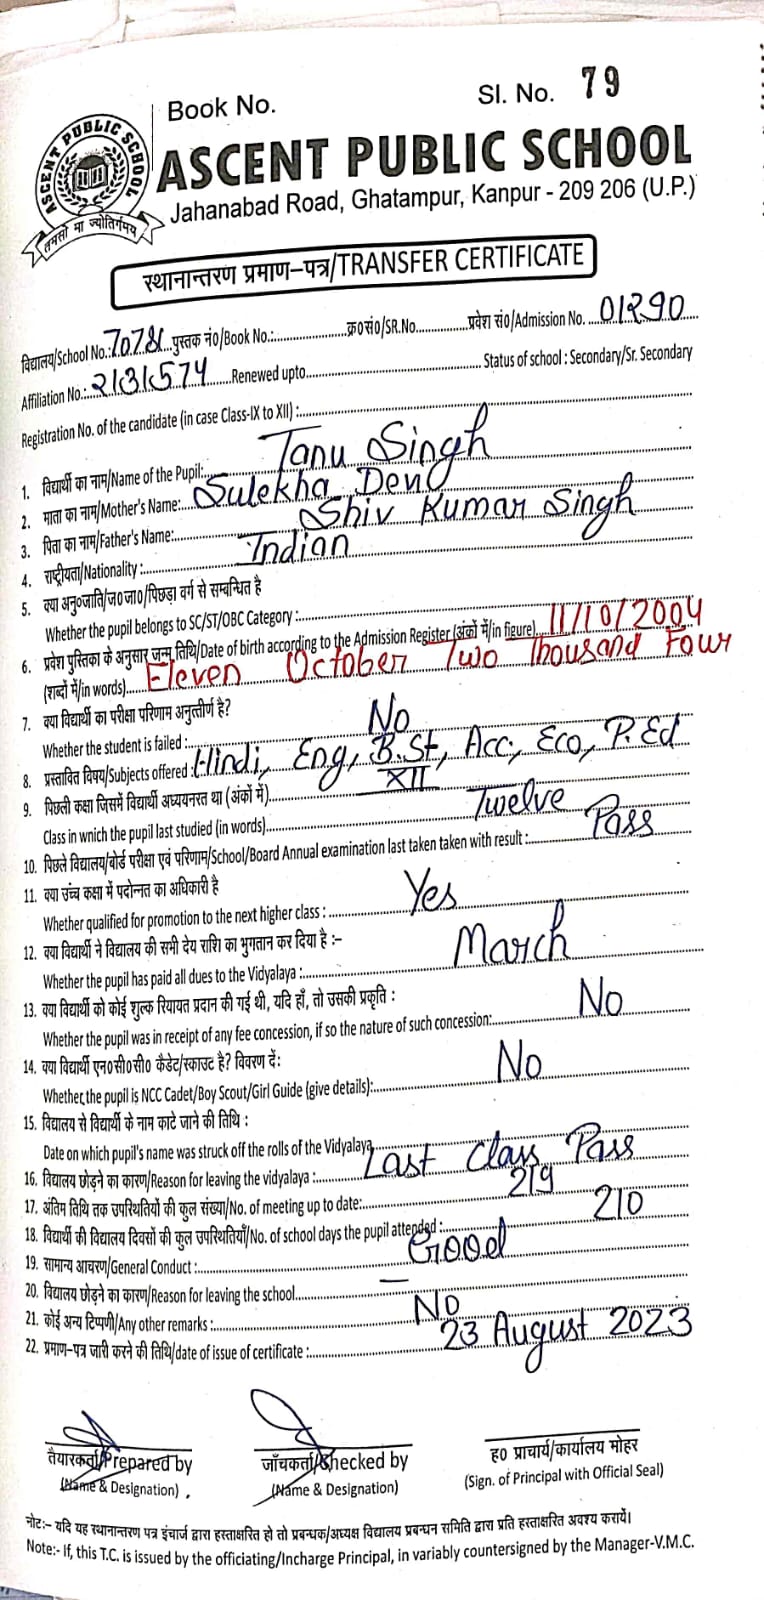 Book No.
Sl. No. 79
ASCENT PUBLIC SCHOOL
तमसो मा ज्योतिर्गमय
ASCENT PUBLIC SCHOOL
Jahanabad Road, Ghatampur, Kanpur - 209 206 (U.P.)
स्थानान्तरण प्रमाण-पत्र/TRANSFER CERTIFICATE
विद्यालय/School No.: पुस्तक नं०/Book No.: क्र०सं०/SR.No. प्रवेश सं०/Admission No. 01290
Affiliation No.: 2131574 Renewed upto Status of school : Secondary/Sr. Secondary
Registration No. of the candidate (in case Class-IX to XII) :
1. विद्यार्थी का नाम/Name of the Pupil: Tanu Singh
2. माता का नाम/Mother's Name: Sulekha Devi
3. पिता का नाम/Father's Name: Shiv Kumar Singh
4. राष्ट्रीयता/Nationality : Indian
5. क्या अनु०जाति/ज०जा०/पिछड़ा वर्ग से सम्बन्धित है
Whether the pupil belongs to SC/ST/OBC Category :
6. प्रवेश पुस्तिका के अनुसार जन्म तिथि/Date of birth according to the Admission Register (अंकों में/in figure) 11/10/2004
(शब्दों में/in words) Eleven October Two Thousand Four
7. क्या विद्यार्थी का परीक्षा परिणाम अनुत्तीर्ण है?
Whether the student is failed : No
8. प्रस्तावित विषय/Subjects offered : Hindi, Eng, B.St, Acc, Eco, P.Ed
9. पिछली कक्षा जिसमें विद्यार्थी अध्ययनरत था (अंकों में) XII
Class in wnich the pupil last studied (in words) Twelve
10. पिछले विद्यालय/बोर्ड परीक्षा एवं परिणाम/School/Board Annual examination last taken taken with result : Pass
11. क्या उच्च कक्षा में पदोन्नत का अधिकारी है
Whether qualified for promotion to the next higher class : Yes
12. क्या विद्यार्थी ने विद्यालय की सभी देय राशि का भुगतान कर दिया है :-
Whether the pupil has paid all dues to the Vidyalaya : March
13. क्या विद्यार्थी को कोई शुल्क रियायत प्रदान की गई थी, यदि हाँ, तो उसकी प्रकृति :
Whether the pupil was in receipt of any fee concession, if so the nature of such concession: No
14. क्या विद्यार्थी एन०सी०सी० कैडेट/स्काउट है? विवरण दें:
Whether the pupil is NCC Cadet/Boy Scout/Girl Guide (give details): No
15. विद्यालय से विद्यार्थी के नाम काटे जाने की तिथि :
Date on which pupil's name was struck off the rolls of the Vidyalaya
16. विद्यालय छोड़ने का कारण/Reason for leaving the vidyalaya : Last Class Pass
17. अंतिम तिथि तक उपस्थितियों की कुल संख्या/No. of meeting up to date: 219
18. विद्यार्थी की विद्यालय दिवसों की कुल उपस्थितियाँ/No. of school days the pupil attended : 210
19. सामान्य आचरण/General Conduct : Good
20. विद्यालय छोड़ने का कारण/Reason for leaving the school –
21. कोई अन्य टिप्पणी/Any other remarks : No
22. प्रमाण-पत्र जारी करने की तिथि/date of issue of certificate : 23 August 2023
तैयारकर्ता/Prepared by
(Name & Designation)
जाँचकर्ता/Checked by
(Name & Designation)
ह० प्राचार्य/कार्यालय मोहर
(Sign. of Principal with Official Seal)
नोट:- यदि यह स्थानान्तरण पत्र इंचार्ज द्वारा हस्ताक्षरित हो तो प्रबन्धक/अध्यक्ष विद्यालय प्रबन्धन समिति द्वारा प्रति हस्ताक्षरित अवश्य करायें।
Note:- If, this T.C. is issued by the officiating/Incharge Principal, in variably countersigned by the Manager-V.M.C.